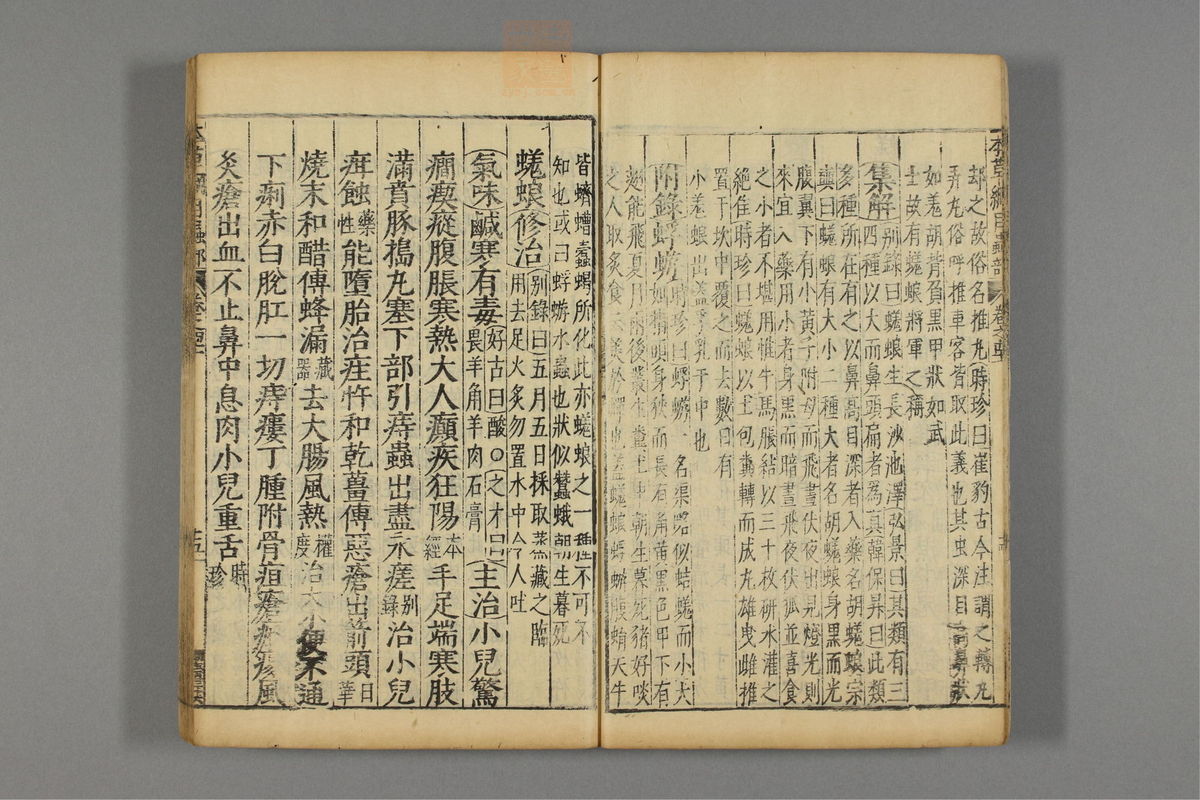 本草綱目蟲部 卷之四十一
却之故俗名推丸時珍曰崔豹古今注謂之轉丸
弄丸俗呼推車客皆取此義也其虫深目高鼻狀
如羌胡背負黑甲狀如武
士故有蜣蜋將軍之稱
集解 別錄曰蜣蜋生長沙池澤弘景曰其類有三
四種以大而鼻頭扁者為真韓保昇曰此類
多種所在有之以鼻高目深者入藥名胡蜣蜋宗
奭曰蜣蜋有大小二種大者名胡蜣蜋身黑而光
腹翼下有小黃子附母而飛晝伏夜出見燈光則
來宜入藥用小者身黑而暗晝飛夜伏狐並喜食
之小者不堪用惟牛馬脹結以三十枚研水灌之
絕佳時珍曰蜣蜋以土包糞轉而成丸雄曳雌推
置于坎中覆之而去數日有
小羌蜋出蓋孚乳于中也
附錄蜉蝣 時珍曰蜉蝣一名渠略似蛣蜣而小大
如指頭身狹而長有角黃黑色甲下有
翅能飛夏月雨後叢生糞土中朝生暮死豬好啖
之人取炙食云美於蟬也蓋蜣蜋蜉蝣腹蛸天牛
皆蠐螬蠹蝎所化此亦蜣蜋之一種不可不
知也或曰蜉蝣水蟲也狀似蠶蛾朝生暮死
蜣蜋 修治 別錄曰五月五日採取蒸藏之臨
用去足火炙勿置水中令人吐
氣味 鹹寒有毒 好古曰酸○之才曰
畏羊角羊肉石膏 主治 小兒驚
癇瘈瘲腹脹寒熱大人癲疾狂陽本經手足端寒肢
滿賁豚搗丸塞下部引痔蟲出盡永瘥別錄治小兒
疳蝕藥性能墮胎治疰忤和乾薑傅惡瘡出箭頭日華
燒末和醋傅蜂漏藏器去大腸風熱權度治大小便不通
下痢赤白脫肛一切痔瘻丁腫附骨疽瘡瘍風
灸瘡出血不止鼻中息肉小兒重舌時珍